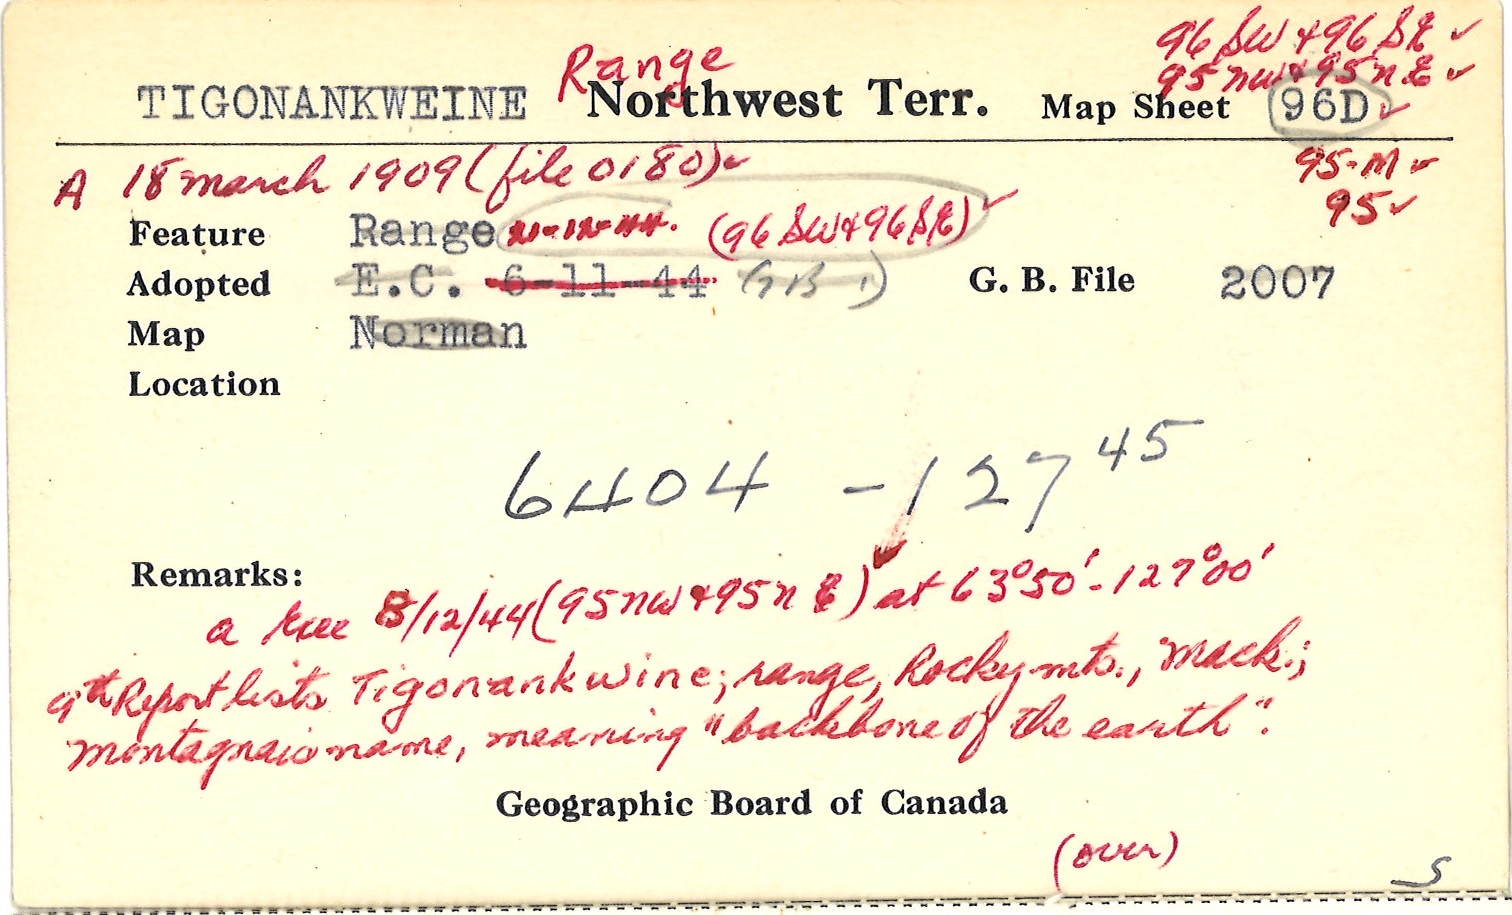 96 SW + 96 SE ✓
Range
95 NW + 95 N.E ✓
TIGONANKWEINE Northwest Terr. Map Sheet 96D ✓
A 18 March 1909 (file 0180) ✓ 95-M ✓
95 ✓
Feature Range (96 SW + 96 SE) ✓
Adopted E.C. 6-11-44 G. B. File 2007
Map Norman
Location
6404 - 127 45
Remarks:
8/12/44 (95 NW + 95 N E) at 63°50' - 127°00'
9th Report lists Tigonankwine; range, Rocky mts., Mack.;
Montagnais name, meaning "backbone of the earth".
Geographic Board of Canada
(over)
S